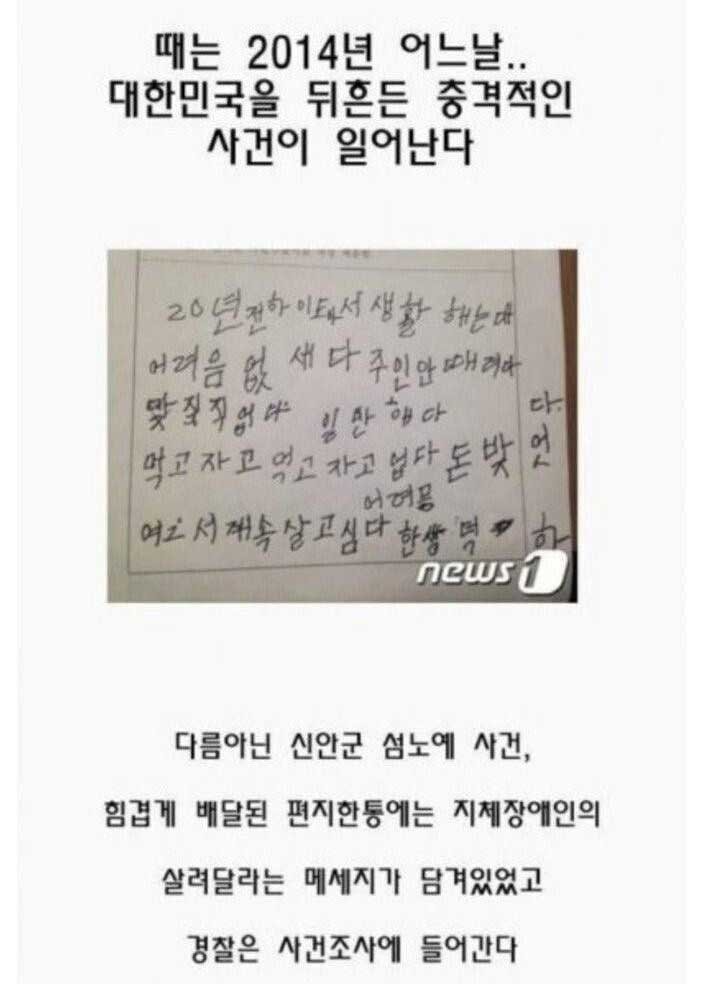 때는 2014년 어느날..
대한민국을 뒤흔든 충격적인
사건이 일어난다
20년전하이도에서 생활 해는대
어려움 없 새다 주인안때려다
맞질직 업다 일만 해다
먹고 자고 먹고 자고 업다 돈 받 엇 다.
어려움
여기서 계속살고심다 한쌍 떡 하
news1
다름아닌 신안군 섬노예 사건,
힘겹게 배달된 편지한통에는 지체장애인의
살려달라는 메세지가 담겨있었고
경찰은 사건조사에 들어간다